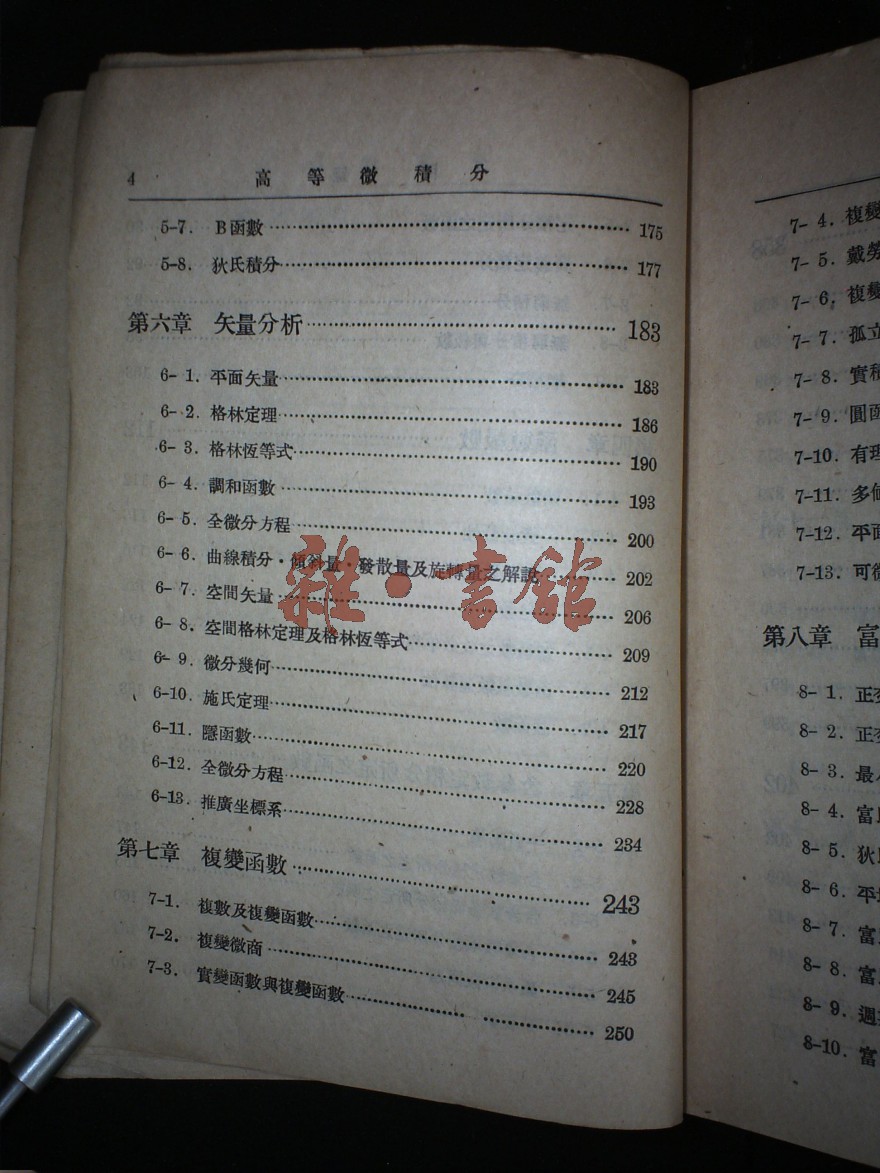 4 高等微積分
5-7. B函數 175
5-8. 狄氏積分 177
第六章 矢量分析 183
6-1. 平面矢量 183
6-2. 格林定理 186
6-3. 格林恆等式 190
6-4. 調和函數 193
6-5. 全微分方程 200
6-6. 曲線積分·傾斜量·發散量及旋轉量之解說 202
6-7. 空間矢量 206
6-8. 空間格林定理及格林恆等式 209
6-9. 微分幾何 212
6-10. 施氏定理 217
6-11. 隱函數 220
6-12. 全微分方程 228
6-13. 推廣坐標系 234
第七章 複變函數 243
7-1. 複數及複變函數 243
7-2. 複變微商 245
7-3. 實變函數與複變函數 250
雜·書館
7-4. 複變
7-5. 戴勞
7-6. 複變
7-7. 孤立
7-8. 實積
7-9. 圓函
7-10. 有理
7-11. 多値
7-12. 平面
7-13. 可微
第八章 富
8-1. 正交
8-2. 正交
8-3. 最小
8-4. 富氏
8-5. 狄氏
8-6. 平均
8-7. 富
8-8. 富
8-9. 週
8-10. 富